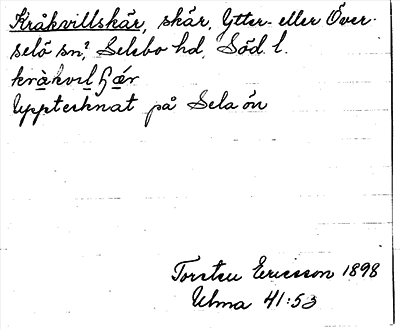 Kråkvillskär, skär, Ytter- eller Över-
selö sn?, Selebo hd, Söd. l.
kråkvil ʃæ̀r
Upptecknat på Selaön
Torsten Ericsson 1898
Ulma 41:53